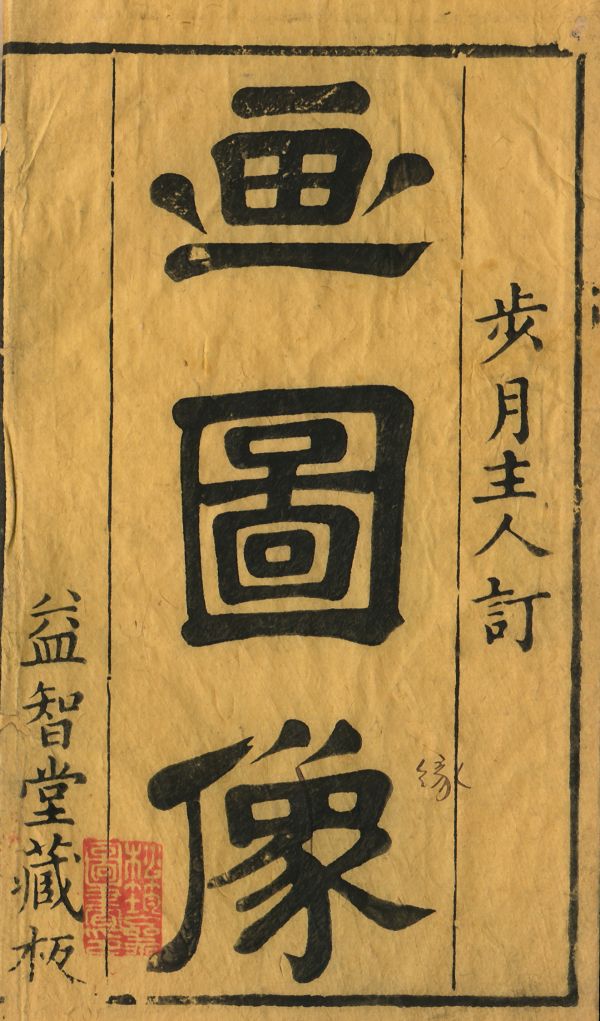 步月主人訂
緣
画圖像
益智堂藏板